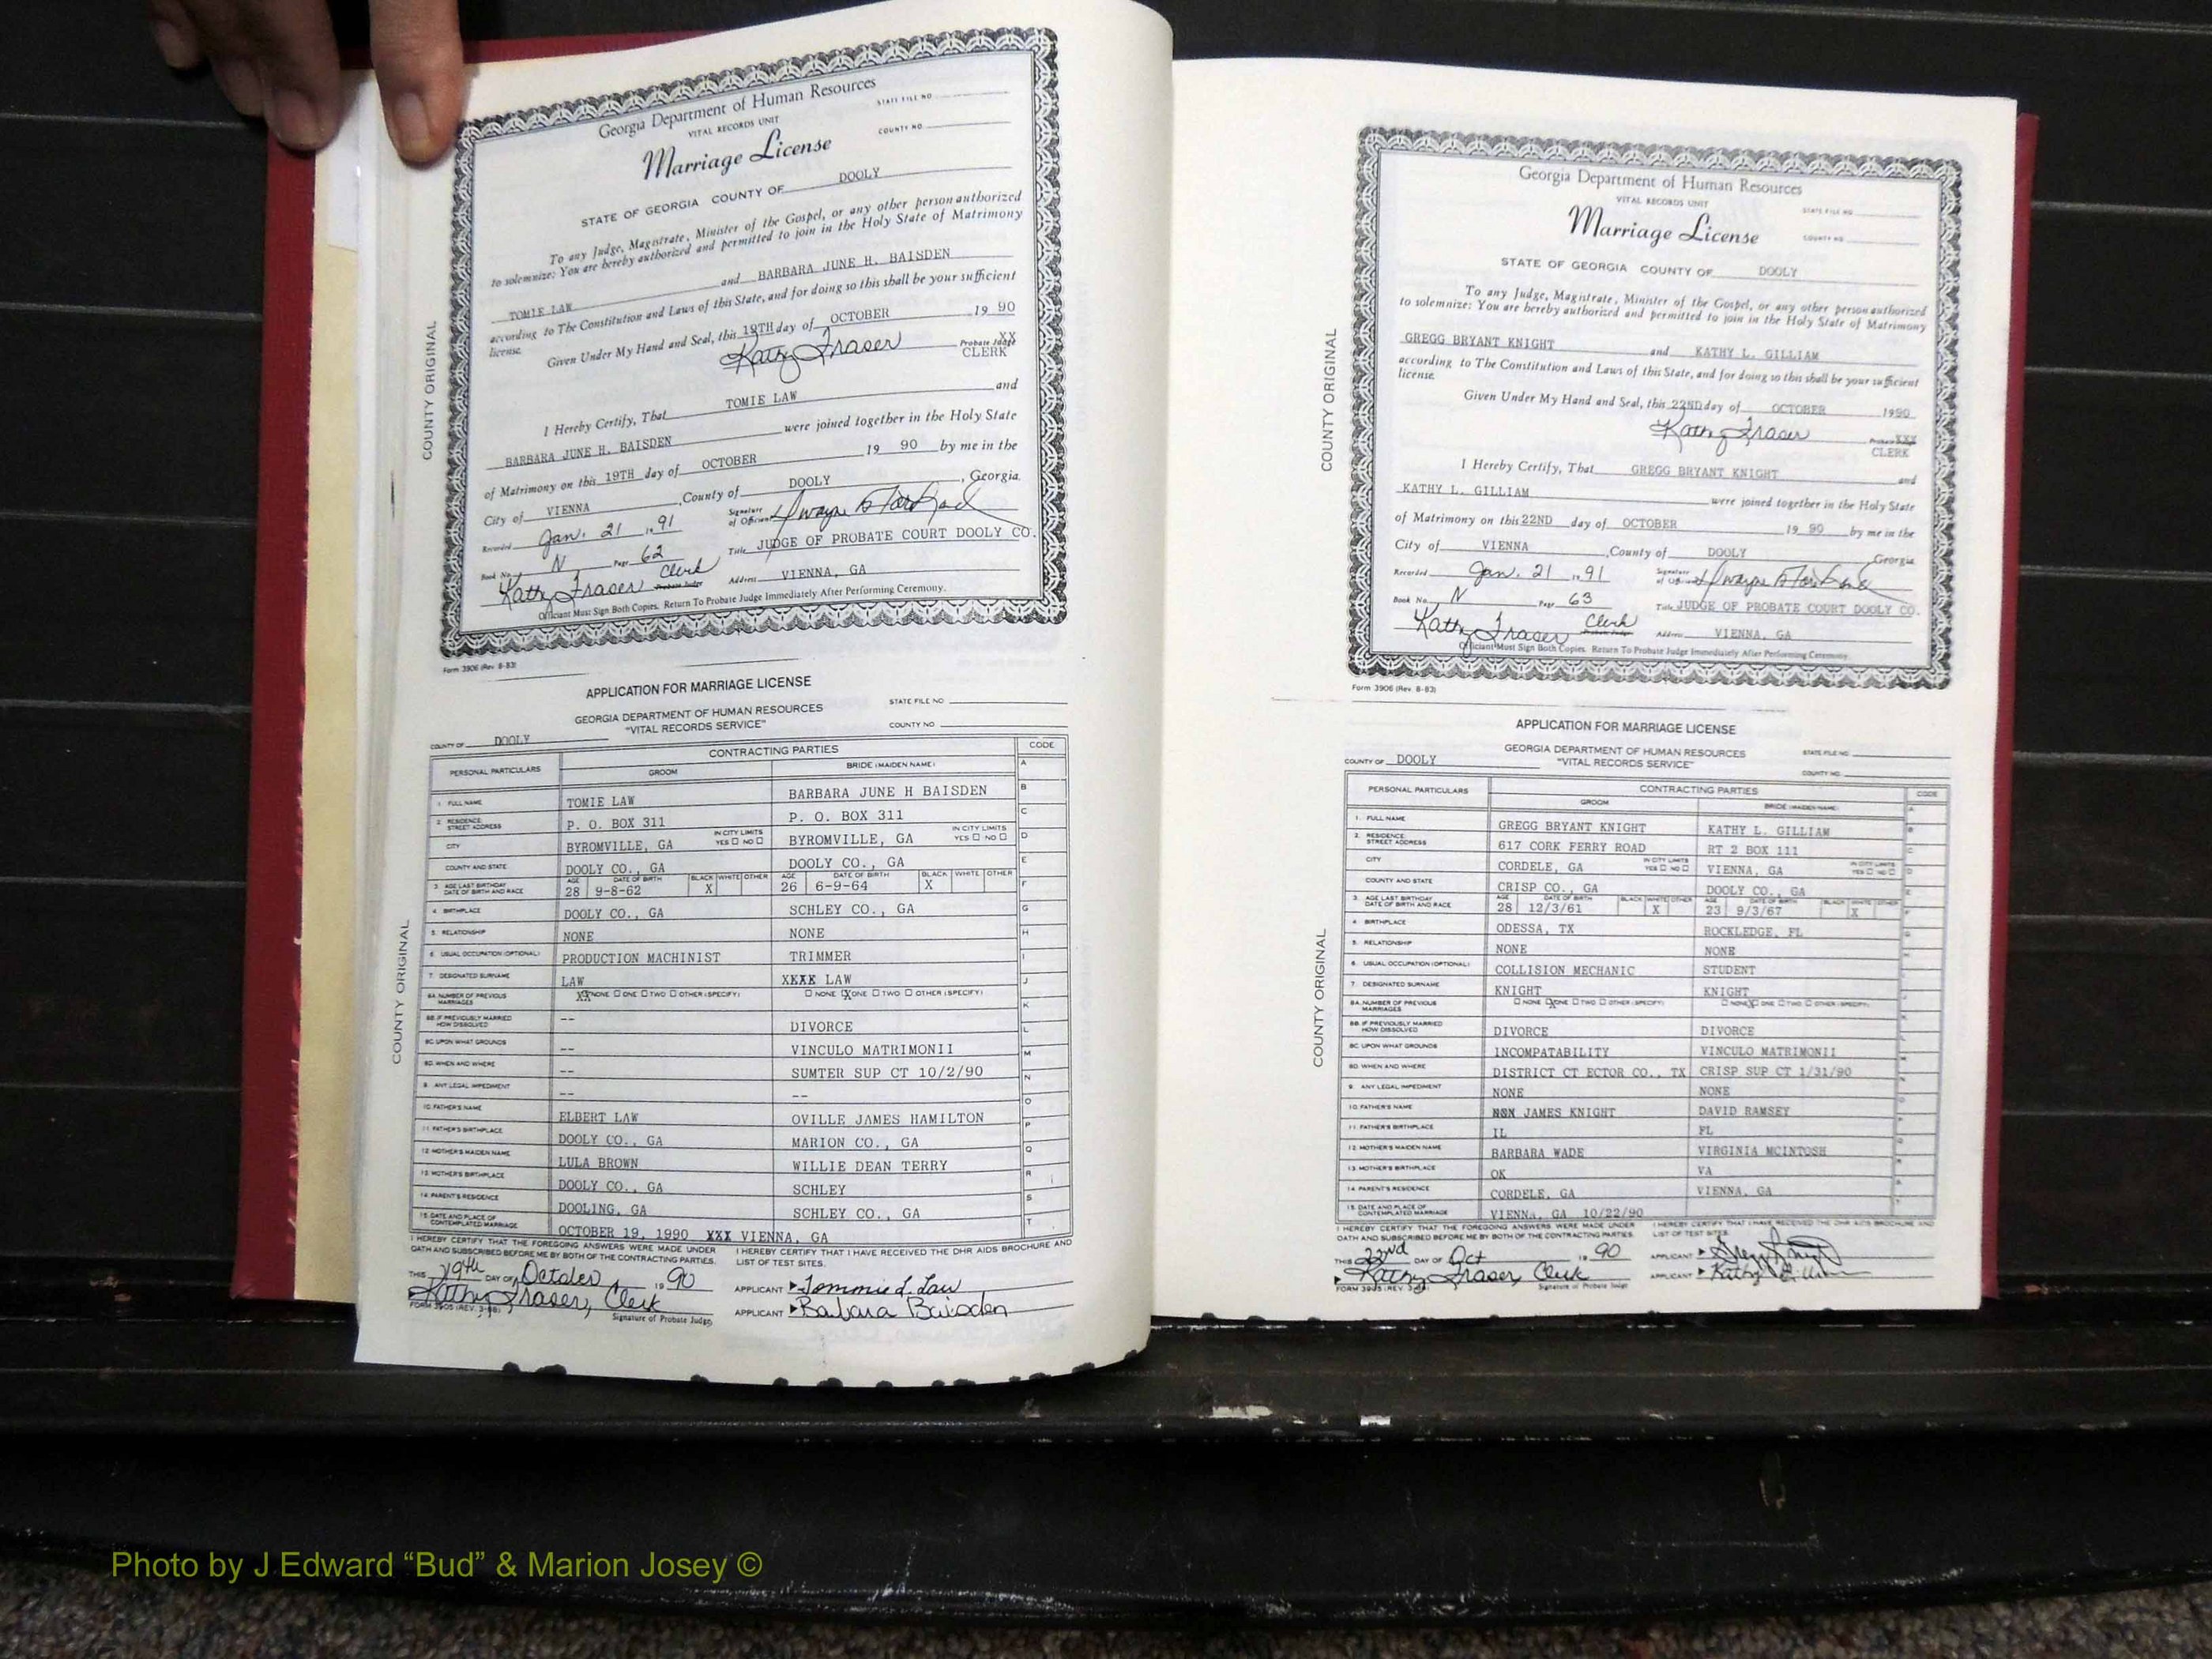 Georgia Department of Human Resources
VITAL RECORDS UNIT
STATE FILE NO
Marriage License
COUNTY NO
STATE OF GEORGIA COUNTY OF DOOLY
To any Judge, Magistrate, Minister of the Gospel, or any other person authorized
to solemnize: You are hereby authorized and permitted to join in the Holy State of Matrimony
TOMIE LAW and BARBARA JUNE H. BAISDEN
according to The Constitution and Laws of this State, and for doing so this shall be your sufficient
license.
Given Under My Hand and Seal, this 19TH day of OCTOBER 19 90
Kathy Fraser XX Probate Judge
CLERK
I Hereby Certify, That TOMIE LAW and
BARBARA JUNE H. BAISDEN were joined together in the Holy State
of Matrimony on this 19TH day of OCTOBER 19 90 by me in the
City of VIENNA, County of DOOLY, Georgia.
Recorded Jan. 21 19 91 Signature of Officiant Dwayne
Book No. N Page 62 Title JUDGE OF PROBATE COURT DOOLY CO.
Kathy Fraser Clerk Probate Judge Address VIENNA, GA
Officiant Must Sign Both Copies. Return To Probate Judge Immediately After Performing Ceremony.
Form 3906 (Rev. 8-83)
COUNTY ORIGINAL
APPLICATION FOR MARRIAGE LICENSE
GEORGIA DEPARTMENT OF HUMAN RESOURCES STATE FILE NO
"VITAL RECORDS SERVICE" COUNTY NO
COUNTY OF DOOLY
PERSONAL PARTICULARS CONTRACTING PARTIES CODE
GROOM BRIDE (MAIDEN NAME)
1. FULL NAME TOMIE LAW BARBARA JUNE H BAISDEN
2. RESIDENCE STREET ADDRESS P. O. BOX 311 P. O. BOX 311
CITY BYROMVILLE, GA IN CITY LIMITS YES NO BYROMVILLE, GA IN CITY LIMITS YES NO
COUNTY AND STATE DOOLY CO., GA DOOLY CO., GA
3. AGE LAST BIRTHDAY DATE OF BIRTH AND RACE AGE 28 DATE OF BIRTH 9-8-62 BLACK X WHITE OTHER AGE 26 DATE OF BIRTH 6-9-64 BLACK X WHITE OTHER
4. BIRTHPLACE DOOLY CO., GA SCHLEY CO., GA
5. RELATIONSHIP NONE NONE
6. USUAL OCCUPATION (OPTIONAL) PRODUCTION MACHINIST TRIMMER
7. DESIGNATED SURNAME LAW XXXX LAW
8A. NUMBER OF PREVIOUS MARRIAGES XX NONE ONE TWO OTHER (SPECIFY) NONE X ONE TWO OTHER (SPECIFY)
8B. IF PREVIOUSLY MARRIED HOW DISSOLVED -- DIVORCE
8C. UPON WHAT GROUNDS -- VINCULO MATRIMONII
8D. WHEN AND WHERE -- SUMTER SUP CT 10/2/90
9. ANY LEGAL IMPEDIMENT -- --
10. FATHER'S NAME ELBERT LAW OVILLE JAMES HAMILTON
11. FATHER'S BIRTHPLACE DOOLY CO., GA MARION CO., GA
12. MOTHER'S MAIDEN NAME LULA BROWN WILLIE DEAN TERRY
13. MOTHER'S BIRTHPLACE DOOLY CO., GA SCHLEY
14. PARENT'S RESIDENCE DOOLING, GA SCHLEY CO., GA
15. DATE AND PLACE OF CONTEMPLATED MARRIAGE OCTOBER 19, 1990 XXX VIENNA, GA
I HEREBY CERTIFY THAT THE FOREGOING ANSWERS WERE MADE UNDER
OATH AND SUBSCRIBED BEFORE ME BY BOTH OF THE CONTRACTING PARTIES.
I HEREBY CERTIFY THAT I HAVE RECEIVED THE DHR AIDS BROCHURE AND
LIST OF TEST SITES.
THIS 19th DAY OF October 19 90 APPLICANT Tommie L. Law
Kathy Fraser, Clerk APPLICANT Barbara Baisden
FORM 3905 (REV. 3-88) Signature of Probate Judge
COUNTY ORIGINAL
Georgia Department of Human Resources
VITAL RECORDS UNIT
STATE FILE NO
Marriage License
COUNTY NO
STATE OF GEORGIA COUNTY OF DOOLY
To any Judge, Magistrate, Minister of the Gospel, or any other person authorized
to solemnize: You are hereby authorized and permitted to join in the Holy State of Matrimony
GREGG BRYANT KNIGHT and KATHY L. GILLIAM
according to The Constitution and Laws of this State, and for doing so this shall be your sufficient
license.
Given Under My Hand and Seal, this 22ND day of OCTOBER 1990
Kathy Fraser Probate Judge XXX
CLERK
I Hereby Certify, That GREGG BRYANT KNIGHT and
KATHY L. GILLIAM were joined together in the Holy State
of Matrimony on this 22ND day of OCTOBER 19 90 by me in the
City of VIENNA, County of DOOLY, Georgia
Recorded Jan. 21 19 91 Signature of Officiant Dwayne
Book No. N Page 63 Title JUDGE OF PROBATE COURT DOOLY CO.
Kathy Fraser Clerk Probate Judge Address VIENNA, GA
Officiant Must Sign Both Copies. Return To Probate Judge Immediately After Performing Ceremony.
Form 3906 (Rev. 8-83)
COUNTY ORIGINAL
APPLICATION FOR MARRIAGE LICENSE
GEORGIA DEPARTMENT OF HUMAN RESOURCES STATE FILE NO
COUNTY OF DOOLY "VITAL RECORDS SERVICE" COUNTY NO
PERSONAL PARTICULARS CONTRACTING PARTIES CODE
GROOM BRIDE (MAIDEN NAME)
1. FULL NAME GREGG BRYANT KNIGHT KATHY L. GILLIAM
2. RESIDENCE STREET ADDRESS 617 CORK FERRY ROAD RT 2 BOX 111
CITY CORDELE, GA IN CITY LIMITS YES NO VIENNA, GA IN CITY LIMITS YES NO
COUNTY AND STATE CRISP CO., GA DOOLY CO., GA
3. AGE LAST BIRTHDAY DATE OF BIRTH AND RACE AGE 28 DATE OF BIRTH 12/3/61 BLACK WHITE X OTHER AGE 23 DATE OF BIRTH 9/3/67 BLACK WHITE X OTHER
4. BIRTHPLACE ODESSA, TX ROCKLEDGE, FL
5. RELATIONSHIP NONE NONE
6. USUAL OCCUPATION (OPTIONAL) COLLISION MECHANIC STUDENT
7. DESIGNATED SURNAME KNIGHT KNIGHT
8A. NUMBER OF PREVIOUS MARRIAGES NONE X ONE TWO OTHER (SPECIFY) NONE X ONE TWO OTHER (SPECIFY)
8B. IF PREVIOUSLY MARRIED HOW DISSOLVED DIVORCE DIVORCE
8C. UPON WHAT GROUNDS INCOMPATABILITY VINCULO MATRIMONII
8D. WHEN AND WHERE DISTRICT CT ECTOR CO., TX CRISP SUP CT 1/31/90
9. ANY LEGAL IMPEDIMENT NONE NONE
10. FATHER'S NAME JAMES KNIGHT DAVID RAMSEY
11. FATHER'S BIRTHPLACE IL FL
12. MOTHER'S MAIDEN NAME BARBARA WADE VIRGINIA MCINTOSH
13. MOTHER'S BIRTHPLACE OK VA
14. PARENT'S RESIDENCE CORDELE, GA VIENNA, GA
15. DATE AND PLACE OF CONTEMPLATED MARRIAGE VIENNA, GA 10/22/90
I HEREBY CERTIFY THAT THE FOREGOING ANSWERS WERE MADE UNDER
OATH AND SUBSCRIBED BEFORE ME BY BOTH OF THE CONTRACTING PARTIES.
I HEREBY CERTIFY THAT I HAVE RECEIVED THE DHR AIDS BROCHURE AND
LIST OF TEST SITES.
THIS 22nd DAY OF Oct 19 90 APPLICANT
Kathy Fraser, Clerk APPLICANT Kathy
FORM 3905 (REV. 3-88) Signature of Probate Judge
COUNTY ORIGINAL
Photo by J Edward “Bud” & Marion Josey ©